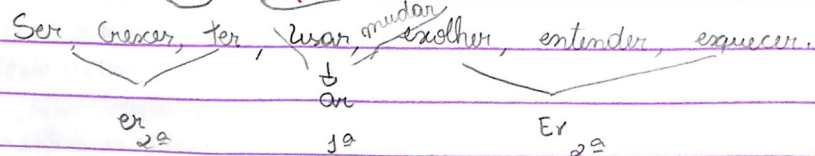 Ser, Crescer, ter, Usar, mudar, escolher, entender, esquecer.
ar
er Er
2ª 1ª 2ª